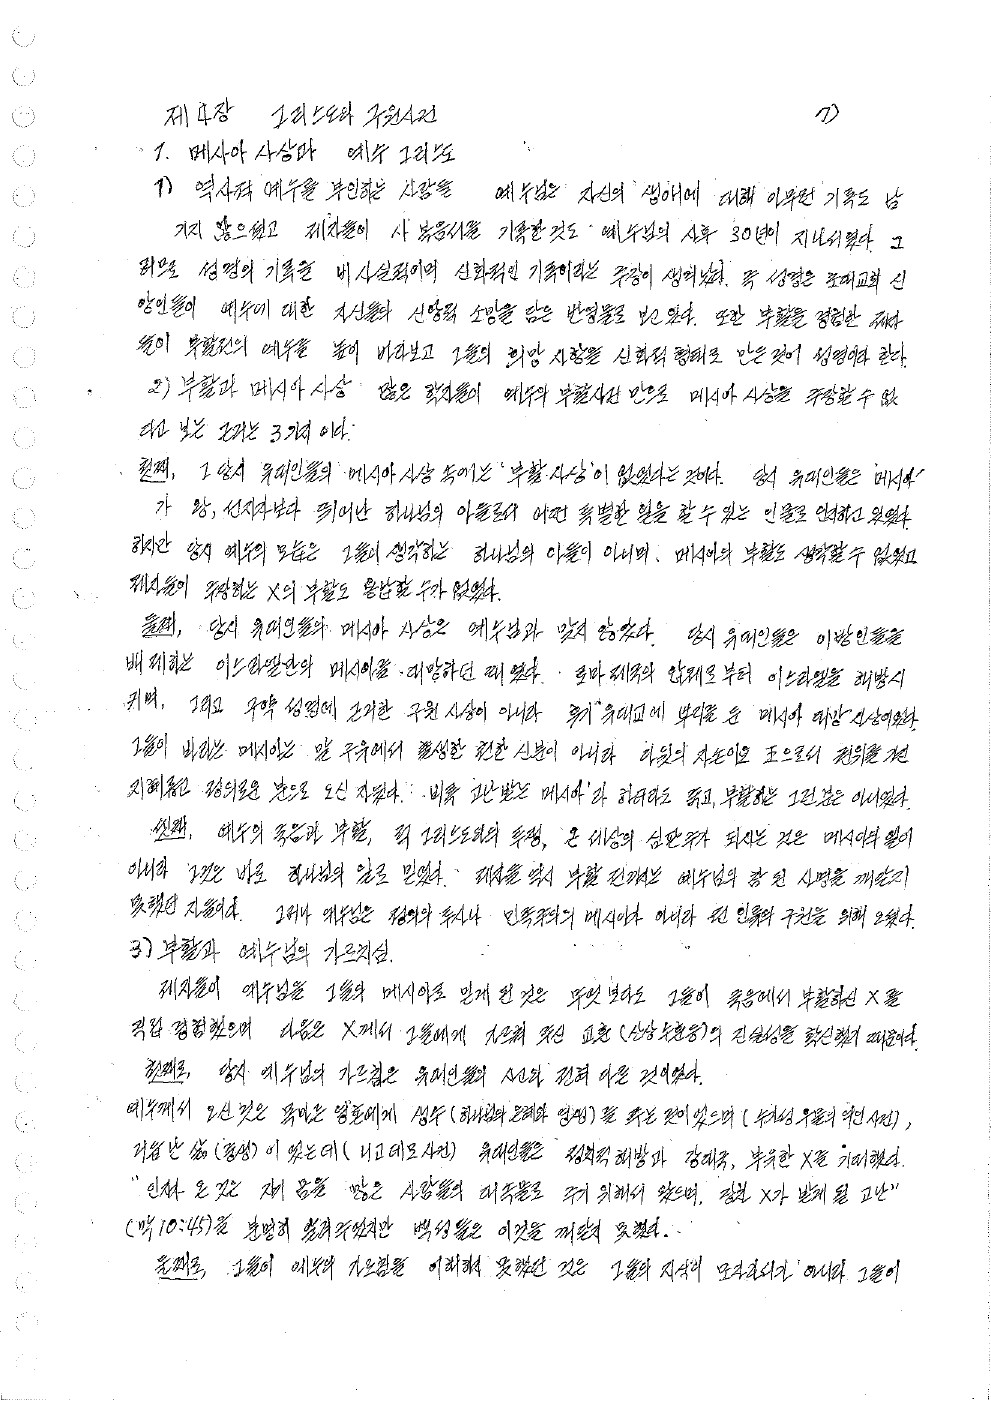 제4장 그리스도와 구원사건 1)
1. 메시아 사상과 예수 그리스도
1) 역사적 예수를 부인하는 사람들 예수님은 자신의 생애에 대해 아무런 기록도 남
기지 않으셨고 제자들이 사 복음서를 기록한 것도 예수님의 사후 30년이 지나서였다. 그
러므로 성경의 기록을 비사실적이며 신화적인 기록이라는 주장이 생겨났다. 즉 성경은 초대교회 신
앙인들이 예수에 대한 자신들의 신앙적 소망을 담은 반영물로 보고 있다. 또한 부활을 경험한 제자
들이 부활전의 예수를 높이 바라보고 그들의 희망 사항을 신화적 형태로 만든 것이 성경이라 한다.
2) 부활과 메시아 사상 많은 학자들이 예수의 부활사건 만으로 메시아 사상을 주장할 수 없
다고 보는 근거는 3가지 이다.
첫째, 그 당시 유대인들의 메시아 사상 속에는 '부활 사상'이 없었다는 것이다. 당시 유대인들은 '메시아'
가 왕, 선지자보다 뛰어난 하나님의 아들로서 어떤 특별한 일을 할 수 있는 인물로 인식하고 있었다.
하지만 당시 예수의 모습은 그들이 생각하는 하나님의 아들이 아니며, 메시아의 부활도 생각할 수 없었고
제자들이 주장하는 X의 부활도 용납할 수가 없었다.
둘째, 당시 유대인들의 메시아 사상은 예수님과 맞지 않았다. 당시 유대인들은 이방인들을
배제하는 이스라엘만의 메시아를 대망하던 때였다. 로마 제국의 압제로 부터 이스라엘을 해방시
키며, 그리고 구약 성경에 근거한 구원 사상이 아니라 후기 유대교에 뿌리를 둔 메시아 대망 사상이었다.
그들이 바라는 메시아는 말 구유에서 탄생한 천한 신분이 아니라 다윗의 자손이요 왕으로서 권위를 가진
지혜롭고 정의로운 분으로 오신 자였다. 비록 '고난받는 메시아'라 하더라도 죽고, 부활하는 그런 분은 아니었다.
셋째, 예수의 죽음과 부활, 즉 그리스도화의 특정, 온 세상의 심판주가 되시는 것은 메시아의 일이
아니라 그것은 바로 하나님의 일로 믿었다. 제자들 역시 부활 전까지는 예수님의 참 된 사명을 깨닫지
못했던 자들이다. 그러나 예수님은 정의의 투사나 민족주의의 메시아가 아니라 전 인류의 구원을 위해 오셨다.
3) 부활과 예수님의 가르치심.
제자들이 예수님을 그들의 메시아로 믿게 된 것은 무엇 보다도 그들이 죽음에서 부활하신 X를
직접 경험했으며 다음은 X께서 그들에게 가르쳐 주신 교훈 (산상수훈등)의 진실성을 확신했기 때문이다.
첫째로, 당시 예수님의 가르침은 유대인들의 사상과 전혀 다른 것이었다.
예수께서 오신 것은 목마른 영혼에게 생수 (하나님의 은혜와 영생)를 주는 것이었으며 (수가성 우물의 여인 사건),
거듭난 삶 (중생)이 있는데 (니고데모 사건) 유대인들은 정치적 해방과 강대국, 부유한 X를 기대했다.
"인자가 온 것은 자기 몸을 많은 사람들의 대속물로 주기 위해서 왔으며, 장차 X가 받게 될 고난"
(막10:45)을 분명히 알려주었지만 백성들은 이것을 깨닫지 못했다.
둘째로, 그들이 예수의 가르침을 이해하지 못했던 것은 그들의 지식이 모자라서가 아니라 그들이